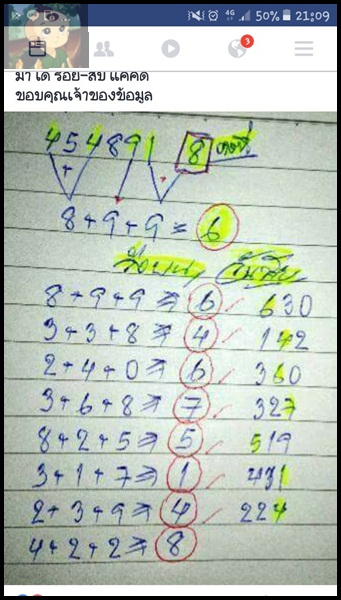 4G 50% 21:09
3
มา ได้ ร้อย-สิบ แค่คิด
ขอบคุณเจ้าของข้อมูล
454891 8 คงที่
8+9+9= 6
8+9+9⇒ 6 630
3+3+8⇒ 4 142
2+4+0⇒ 6 360
3+6+8⇒ 7 327
8+2+5⇒ 5 519
3+1+7⇒ 1 431
2+3+9⇒ 4 224
4+2+2⇒ 8